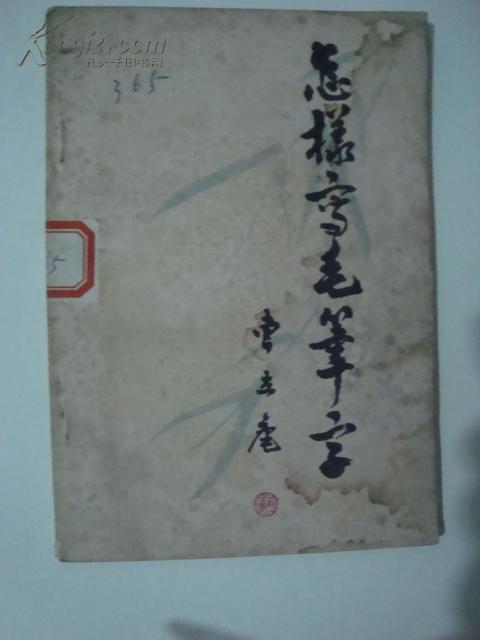 Kongfz.com
孔夫子旧书网
365
怎樣寫毛筆字
曹立庵
5